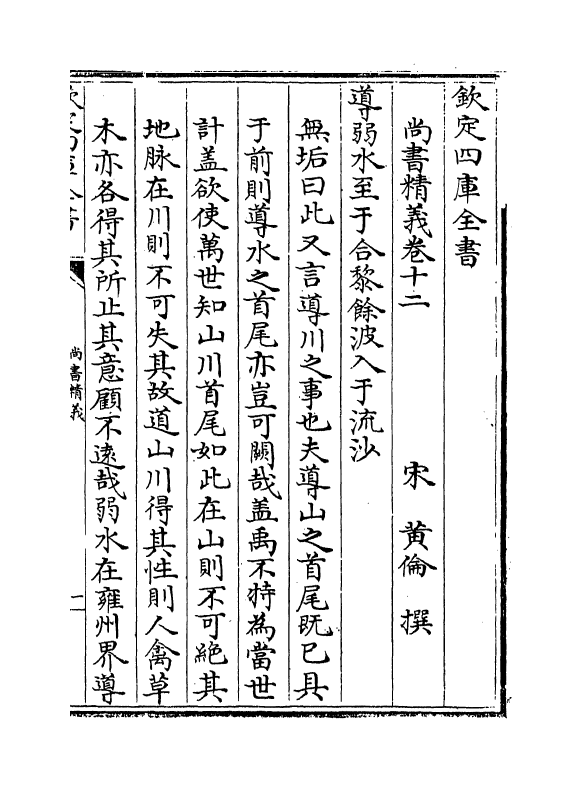 欽定四庫全書
尚書精義卷十二
宋 黃倫 撰
導弱水至于合黎餘波入于流沙
無垢曰此又言導川之事也夫導山之首尾既已具
于前則導水之首尾亦豈可闕哉蓋禹不特為當世
計蓋欲使萬世知山川首尾如此在山則不可絶其
地脉在川則不可失其故道山川得其性則人禽草
木亦各得其所止其意顧不遠哉弱水在雍州界導
欽定四庫全書
尚書精義
一